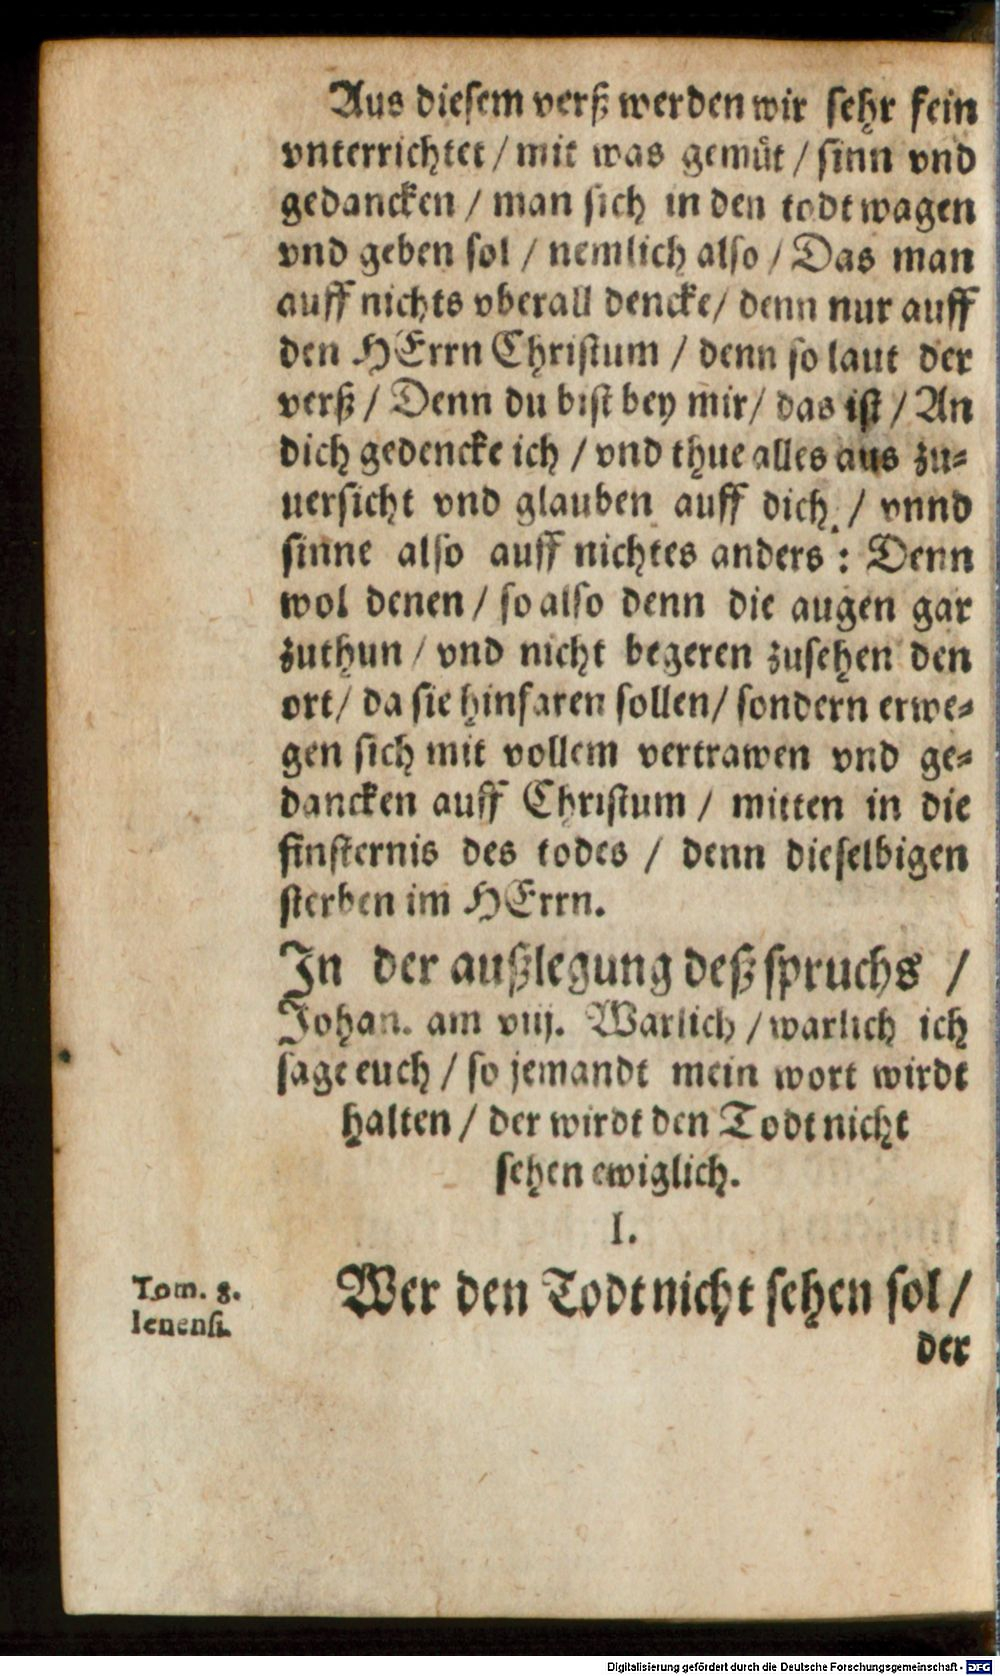 Aus diesem verß werden wir sehr fein
vnterrichtet / mit was gemüt / sinn vnd
gedancken / man sich in den todt wagen
vnd geben sol / nemlich also / Das man
auff nichts vberall dencke / denn nur auff
den HErrn Christum / denn so laut der
verß / Denn du bist bey mir / das ist / An
dich gedencke ich / vnd thue alles aus zu-
uersicht vnd glauben auff dich / vnnd
sinne also auff nichtes anders : Denn
wol denen / so also denn die augen gar
zuthun / vnd nicht begeren zusehen den
ort / da sie hinfaren sollen / sondern erwe-
gen sich mit vollem vertrawen vnd ge-
dancken auff Christum / mitten in die
finsternis des todes / denn dieselbigen
sterben im HErrn.
In der außlegung deß spruchs /
Johan. am viij. Warlich / warlich ich
sage euch / so jemandt mein wort wirdt
halten / der wirdt den Todt nicht
sehen ewiglich.
I.
Tom. 8.
Ienensi.
Wer den Todt nicht sehen sol /
der
Digitalisierung gefördert durch die Deutsche Forschungsgemeinschaft - DFG